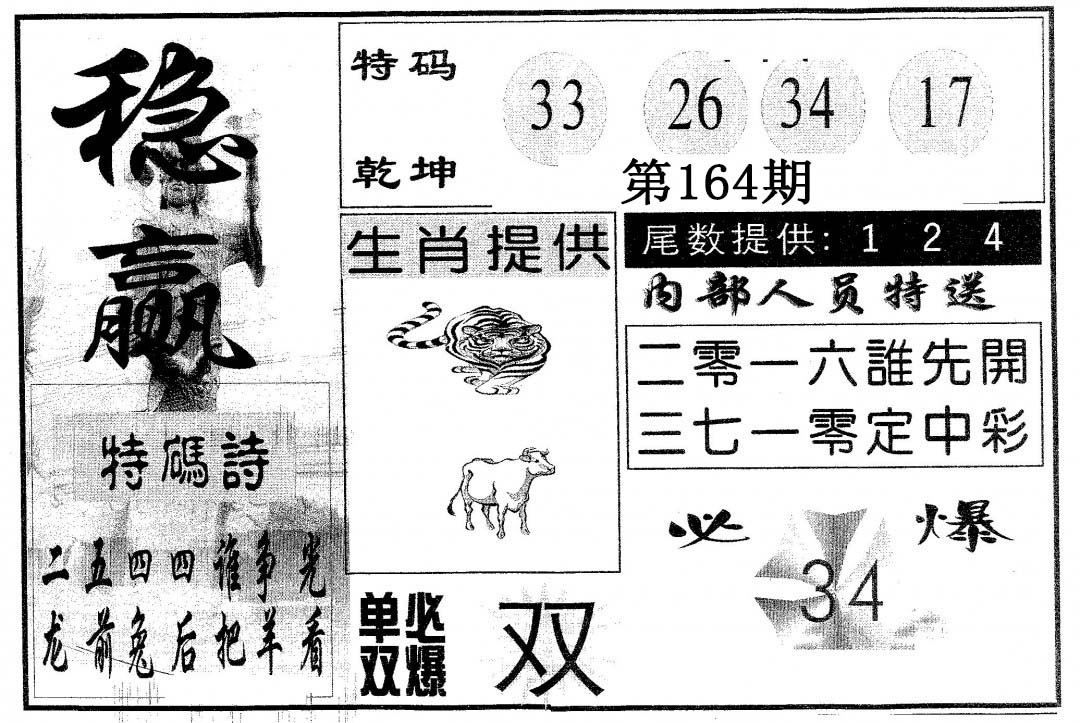 稳赢
特码
33 26 34 17
乾坤
第164期
生肖提供
尾数提供: 1 2 4
内部人员特送
二零一六誰先開
三七一零定中彩
特碼詩
二五四四谁争光
龙前兔后把羊看
必爆
34
单双必爆
双